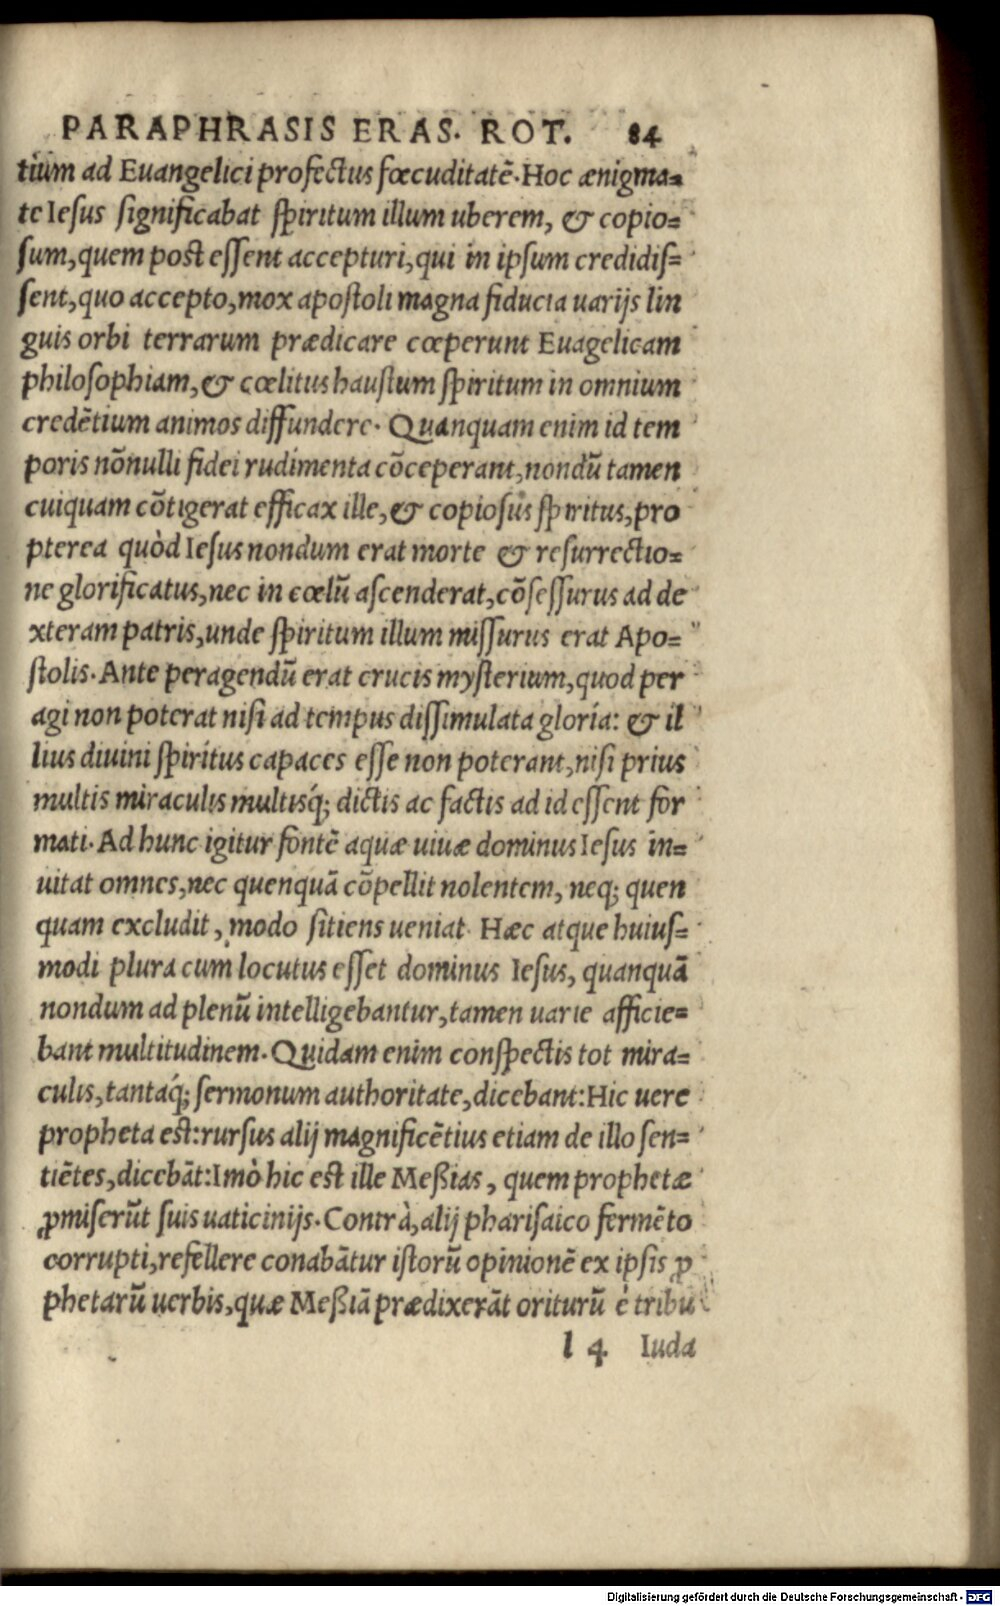 PARAPHRASIS ERAS. ROT. 84
tium ad Euangelici profectus fœcuditatē. Hoc ænigma=
te Iesus significabat spiritum illum uberem, & copio=
sum, quem post essent accepturi, qui in ipsum credidis=
sent, quo accepto, mox apostoli magna fiducia uarijs lin
guis orbi terrarum prædicare cœperunt Euagelicam
philosophiam, & cœlitus haustum spiritum in omnium
credētium animos diffundere. Quanquam enim id tem
poris nōnulli fidei rudimenta cōceperant, nondū tamen
cuiquam cōtigerat efficax ille, & copiosus spiritus, pro
pterea quòd Iesus nondum erat morte & resurrectio=
ne glorificatus, nec in cœlū ascenderat, cōsessurus ad de
xteram patris, unde spiritum illum missurus erat Apo=
stolis. Ante peragendū erat crucis mysterium, quod per
agi non poterat nisi ad tempus dissimulata gloria: & il
lius diuini spiritus capaces esse non poterant, nisi prius
multis miraculis multisq́; dictis ac factis ad id essent for
mati. Ad hunc igitur fontē aquæ uiuæ dominus Iesus in=
uitat omnes, nec quenquā cōpellit nolentem, neq; quen
quam excludit, modo sitiens ueniat. Hæc atque huius=
modi plura cum locutus esset dominus Iesus, quanquā
nondum ad plenū intelligebantur, tamen uarie afficie=
bant multitudinem. Quidam enim conspectis tot mira=
culis, tantaq́; sermonum authoritate, dicebant: Hic uere
propheta est: rursus alij magnificētius etiam de illo sen=
tiētes, dicebāt: Imò hic est ille Meßias, quem prophetæ
ꝓmiserūt suis uaticinijs. Contrà, alij pharisaico fermēto
corrupti, refellere conabātur istorū opinionē ex ipsis ꝓ
phetarū uerbis, quæ Meßiā prædixerāt oriturū è tribu
l 4 Iuda
Digitalisierung gefördert durch die Deutsche Forschungsgemeinschaft - DFG